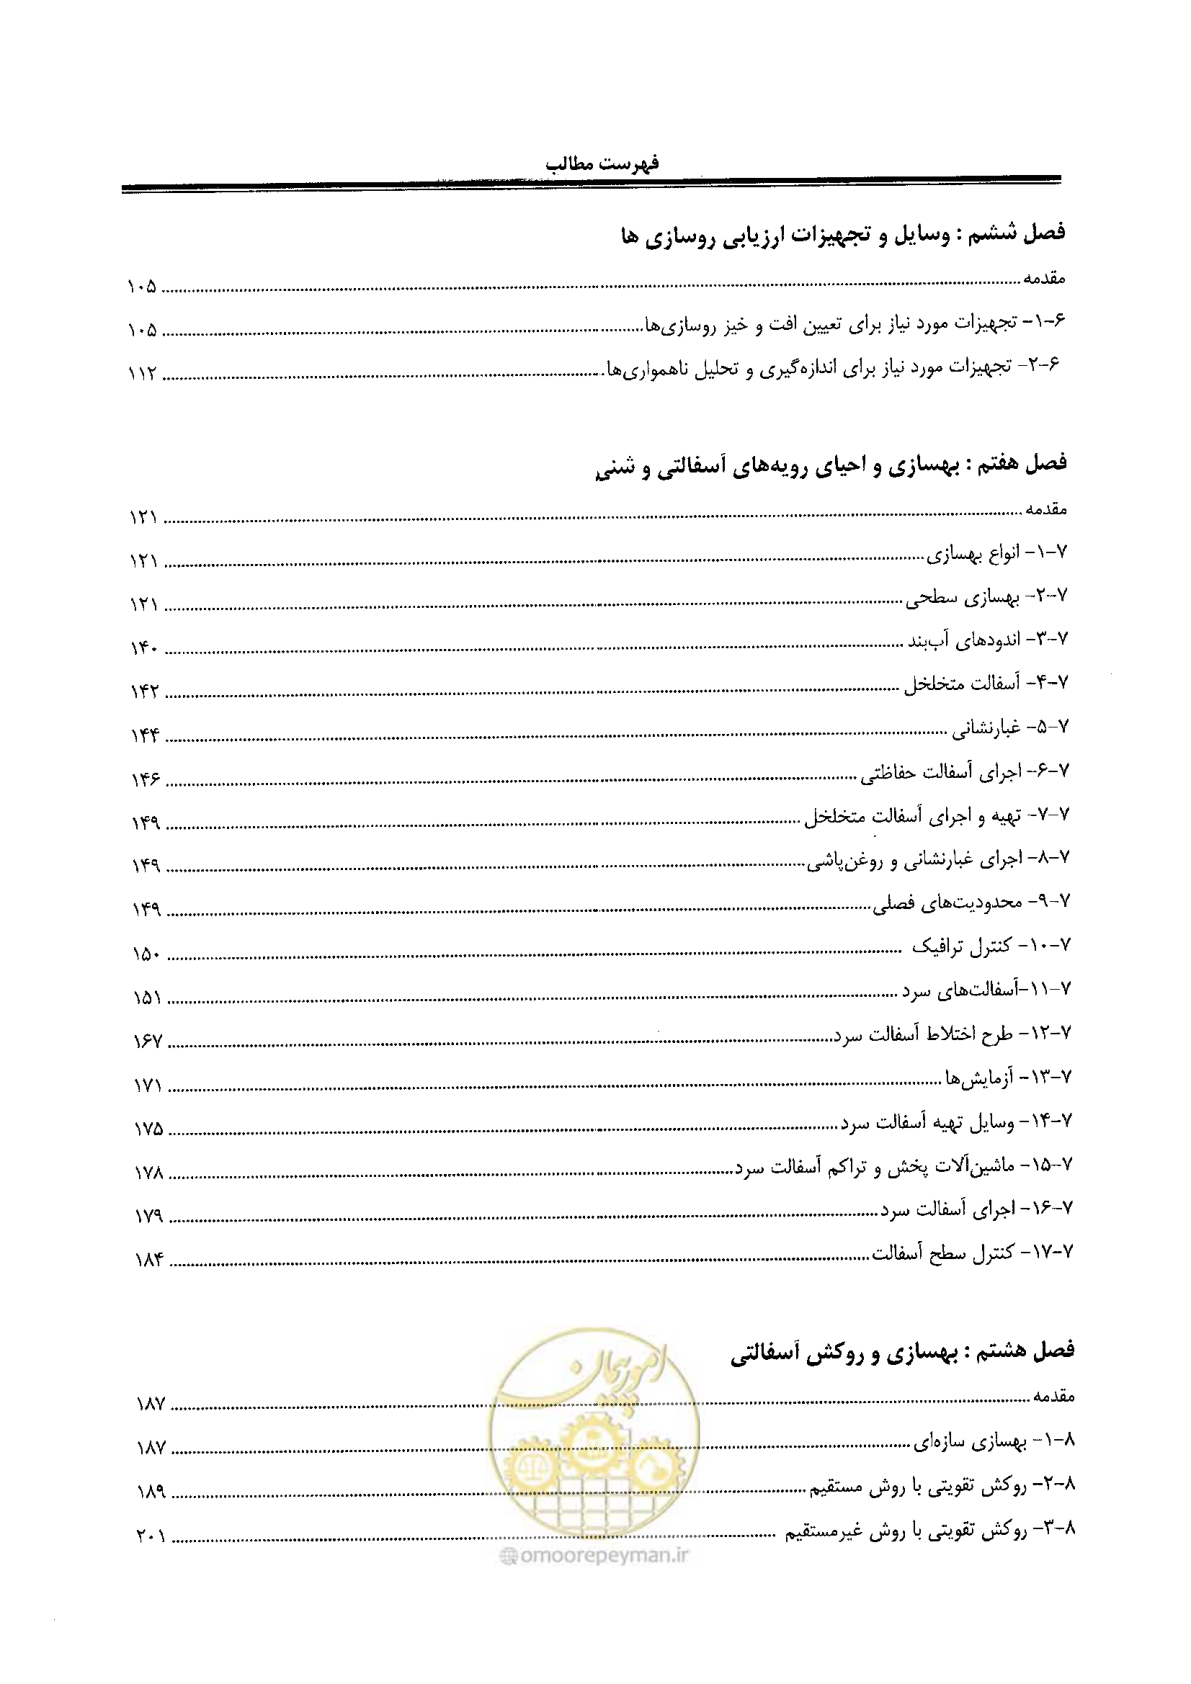 فهرست مطالب
فصل ششم : وسایل و تجهیزات ارزیابی روسازی ها
مقدمه ........ ۱۰۵
۶-۱- تجهیزات مورد نیاز برای تعیین افت و خیز روسازی‌ها ........ ۱۰۵
۶-۲- تجهیزات مورد نیاز برای اندازه‌گیری و تحلیل ناهمواری‌ها ........ ۱۱۲
فصل هفتم : بهسازی و احیای رویه‌های آسفالتی و شنی
مقدمه ........ ۱۲۱
۷-۱- انواع بهسازی ........ ۱۲۱
۷-۲- بهسازی سطحی ........ ۱۲۱
۷-۳- اندودهای آب‌بند ........ ۱۴۰
۷-۴- آسفالت متخلخل ........ ۱۴۲
۷-۵- غبارنشانی ........ ۱۴۴
۷-۶- اجرای آسفالت حفاظتی ........ ۱۴۶
۷-۷- تهیه و اجرای آسفالت متخلخل ........ ۱۴۹
۷-۸- اجرای غبارنشانی و روغن‌پاشی ........ ۱۴۹
۷-۹- محدودیت‌های فصلی ........ ۱۴۹
۷-۱۰- کنترل ترافیک ........ ۱۵۰
۷-۱۱-آسفالت‌های سرد ........ ۱۵۱
۷-۱۲- طرح اختلاط آسفالت سرد ........ ۱۶۷
۷-۱۳- آزمایش‌ها ........ ۱۷۱
۷-۱۴- وسایل تهیه آسفالت سرد ........ ۱۷۵
۷-۱۵- ماشین‌آلات پخش و تراکم آسفالت سرد ........ ۱۷۸
۷-۱۶- اجرای آسفالت سرد ........ ۱۷۹
۷-۱۷- کنترل سطح آسفالت ........ ۱۸۴
فصل هشتم : بهسازی و روکش آسفالتی
امور پیمان
مقدمه ........ ۱۸۷
۸-۱- بهسازی سازه‌ای ........ ۱۸۷
۸-۲- روکش تقویتی با روش مستقیم ........ ۱۸۹
۸-۳- روکش تقویتی با روش غیرمستقیم ........ ۲۰۱
@omoorepeyman.ir